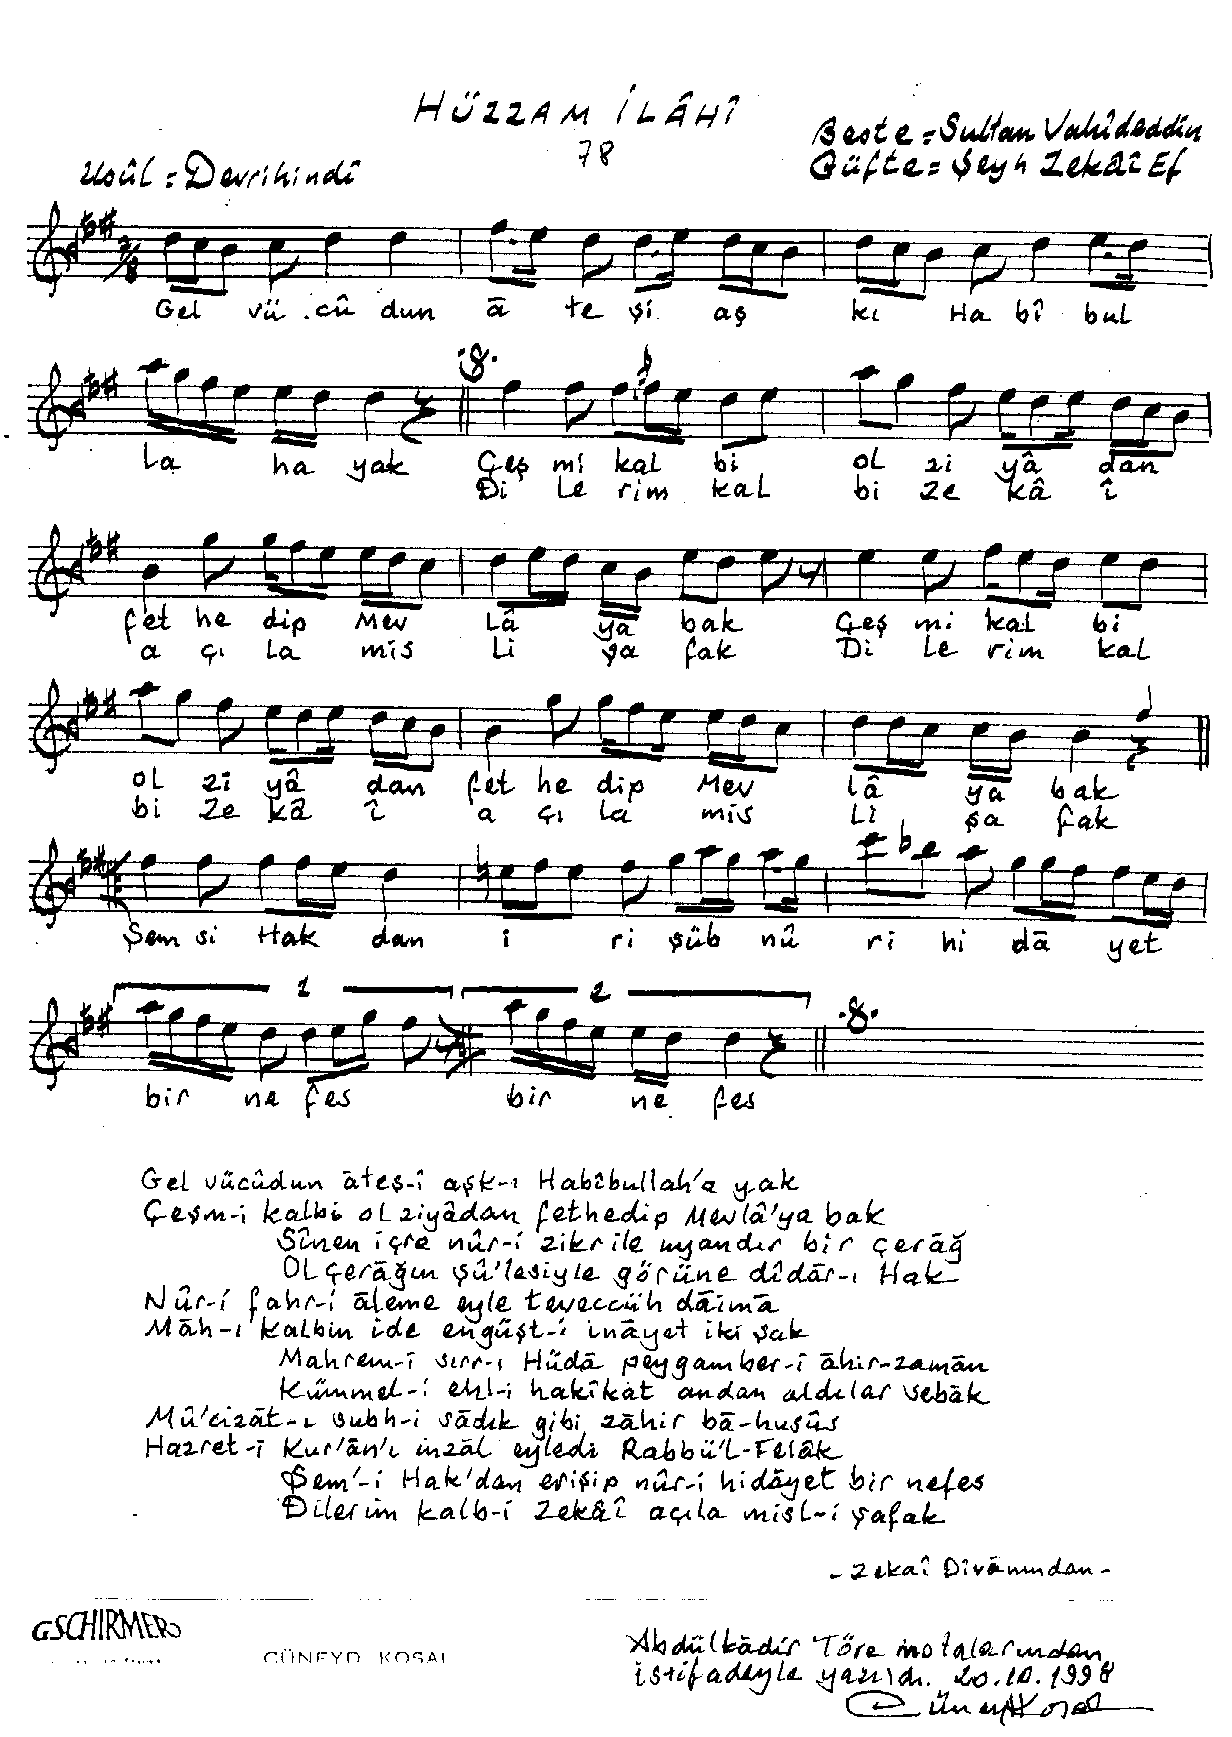 HÜZZAM İLÂHÎ
78
Beste = Sultan Vahîdeddin
Güfte = Şeyh Zekâî Ef
Usûl = Devrihindî
7/8
Gel vü cû dun ā te şi aş kı Ha bî bul
la ha yak Çeş mi kal bi ol zi yâ dan
Di le rim kal bi ze kâ î
fet he dip Mev lâ ya bak Çeş mi kal bi
a çı la mis li şa fak Di le rim kal
ol zi yâ dan fet he dip Mev lâ ya bak
bi ze kâ î a çı la mis li şa fak
Şem si Hak dan i ri şüb nû ri hi dā yet
1 2
bir ne fes bir ne fes
Gel vücûdun āteş-î aşk-ı Habîbullah'a yak
Çeşm-i kalbi ol ziyâdan fethedip Mevlâ'ya bak
Sînen içre nûr-i zikr ile uyandır bir çerāğ
Ol çerāğın şû'lesiyle görüne dîdār-ı Hak
Nûr-i fahr-i āleme eyle teveccüh dāimā
Māh-ı kalbin ide engûşt-i ināyet iki şak
Mahrem-î sırr-ı Hüdā peygamber-î āhir-zamān
Kümmel-i ehl-i hakîkat andan aldılar sebāk
Mû'cizāt-ı subh-i sādık gibi zāhir bā-husûs
Hazret-î Kur'ān'ı inzāl eyledi Rabbü'l-Felâk
Şem'-i Hak'dan erişip nûr-i hidāyet bir nefes
Dilerim kalb-i Zekâî açıla misl-i şafak
- Zekaî Dîvānından -
G SCHIRMER
CÜNEYD KOSAL
Abdülkādir Töre notalarından
istifadeyle yazıldı. 20.10.1998
Cüneyd Kosal